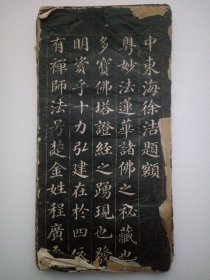 中東海徐浩題額
粵妙法蓮華諸佛之秘藏也
多寶佛塔證經之踴現也發
明資乎十力弘建在於四依
有禪師法号楚金姓程廣